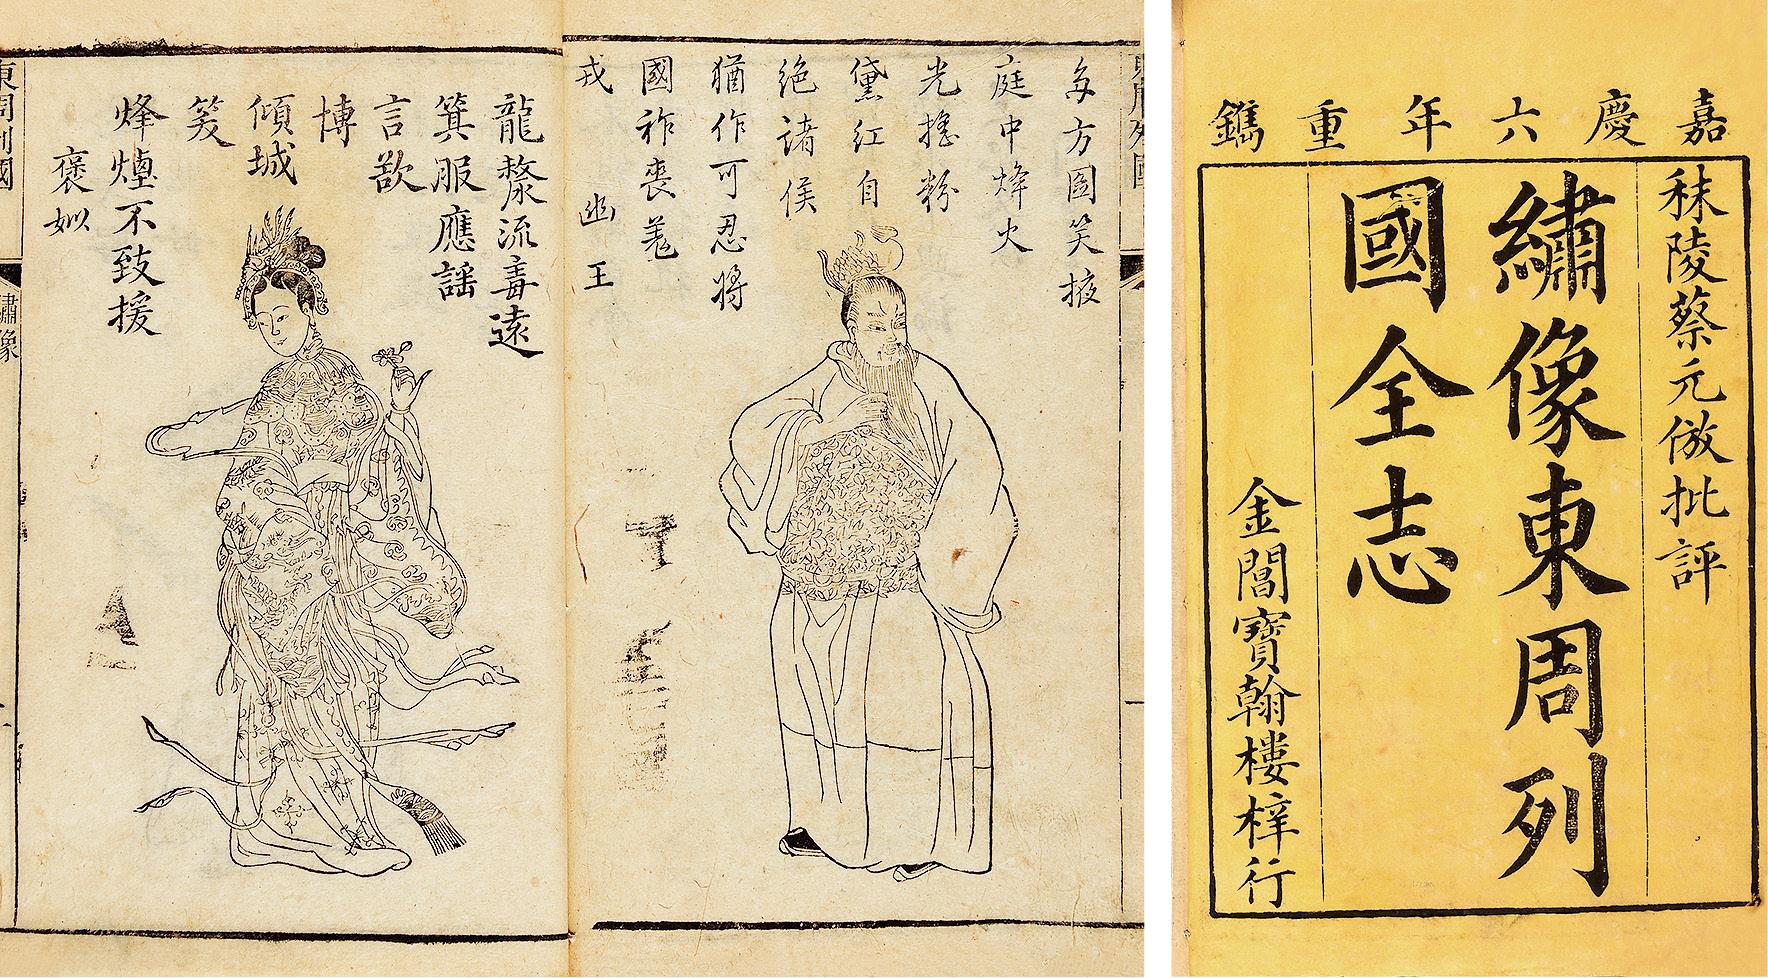 嘉慶六年重鐫
秣陵蔡元倣批評
繡像東周列
國全志
金閶寶翰樓梓行
多方圖笑掖
庭中烽火
光搖粉
黛紅自
絶諸侯
猶作可忍將
國祚喪羗
戎
幽王
龍漦流毒遠
箕服應謡
言欲
博
傾城
笑
烽煙不致援
褒姒
東周列國
繡像